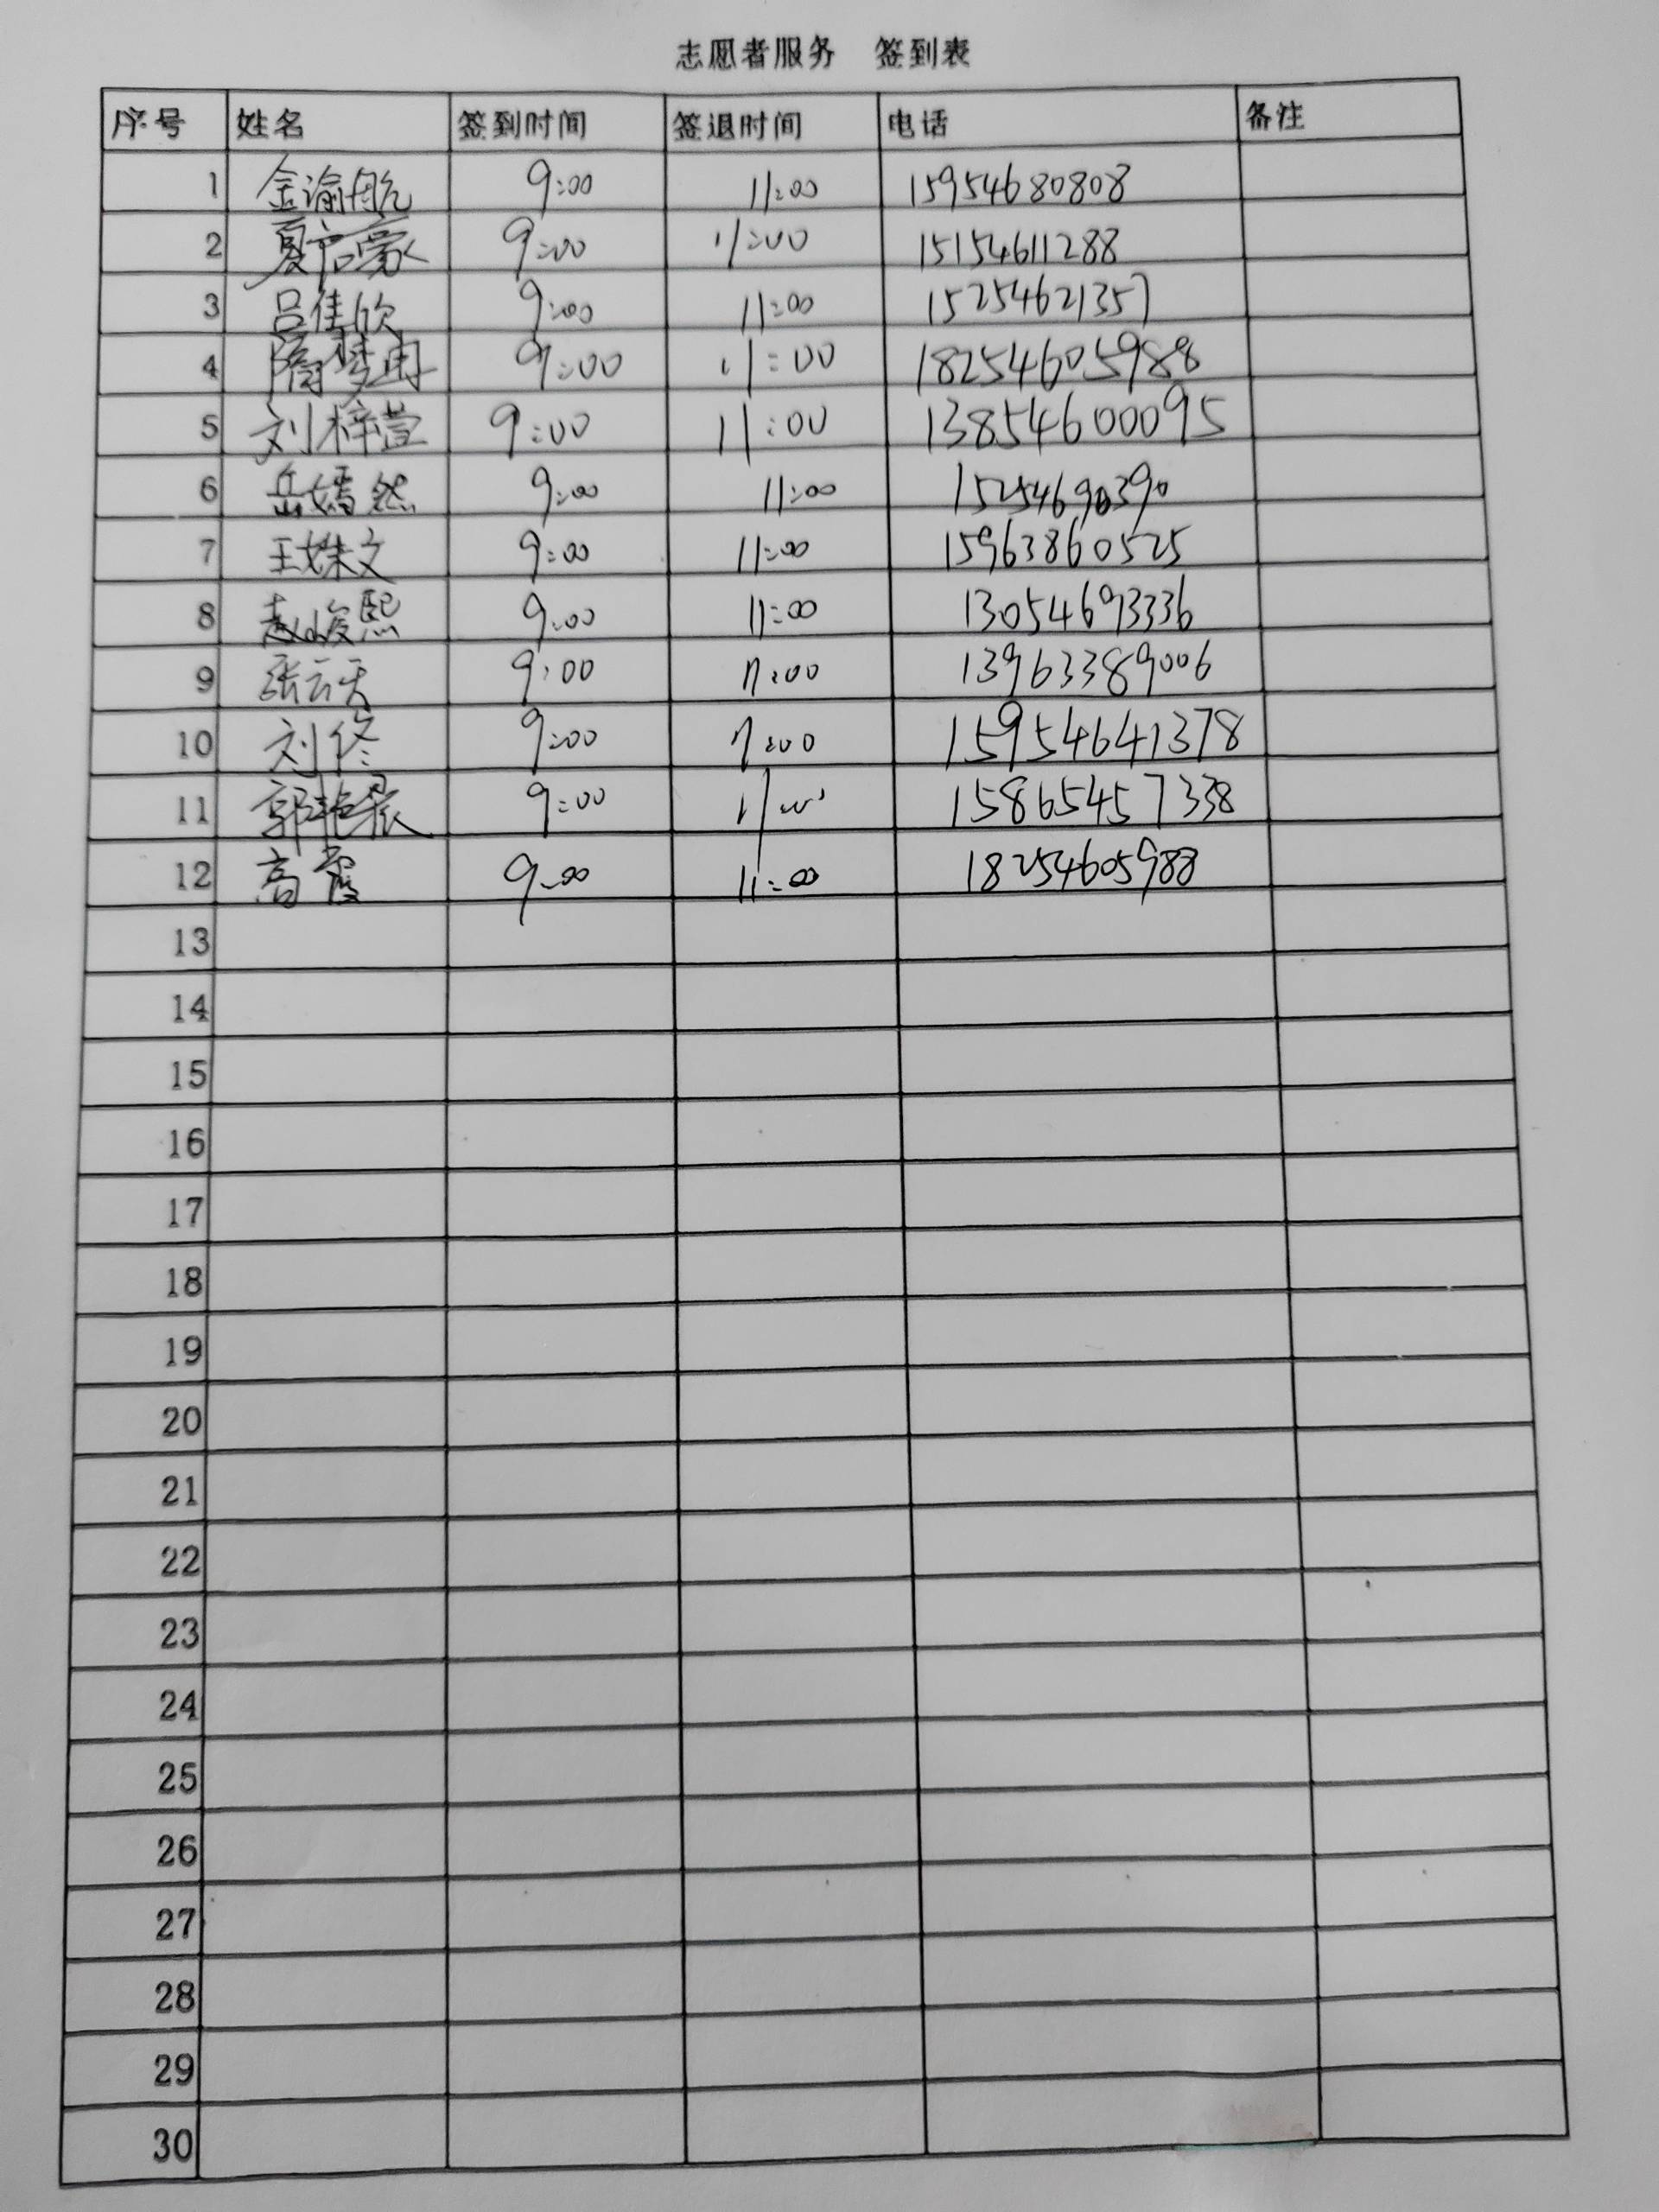 志愿者服务 签到表
序号 姓名 签到时间 签退时间 电话 备注
1 金谕航 9:00 11:00 15954680808
2 夏 豪 9:00 11:00 15154611288
3 吕佳欣 9:00 11:00 15254621357
4 隋梦冉 9:00 11:00 18254605988
5 刘梓萱 9:00 11:00 13854600095
6 岳嫣然 9:00 11:00 15254690390
7 王姝文 9:00 11:00 15963860525
8 赵峻熙 9:00 11:00 13054693336
9 张云天 9:00 11:00 13963389006
10 刘佟 9:00 11:00 15954641378
11 郭 9:00 11:00 15865457338
12 高霞 9:00 11:00 18254605988
13
14
15
16
17
18
19
20
21
22
23
24
25
26
27
28
29
30